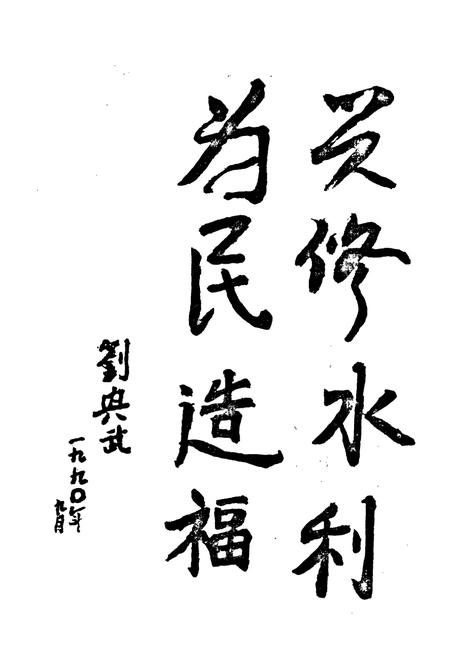 兴修水利
为民造福
劉典武
一九九〇年
九月